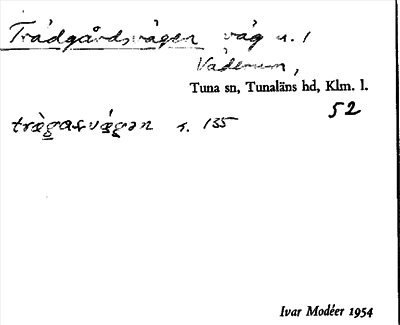 Trädgårdsvägen väg u. 1
Våderum,
Tuna sn, Tunaläns hd, Klm. l.
52
trägasvägen s. 135
Ivar Modéer 1954